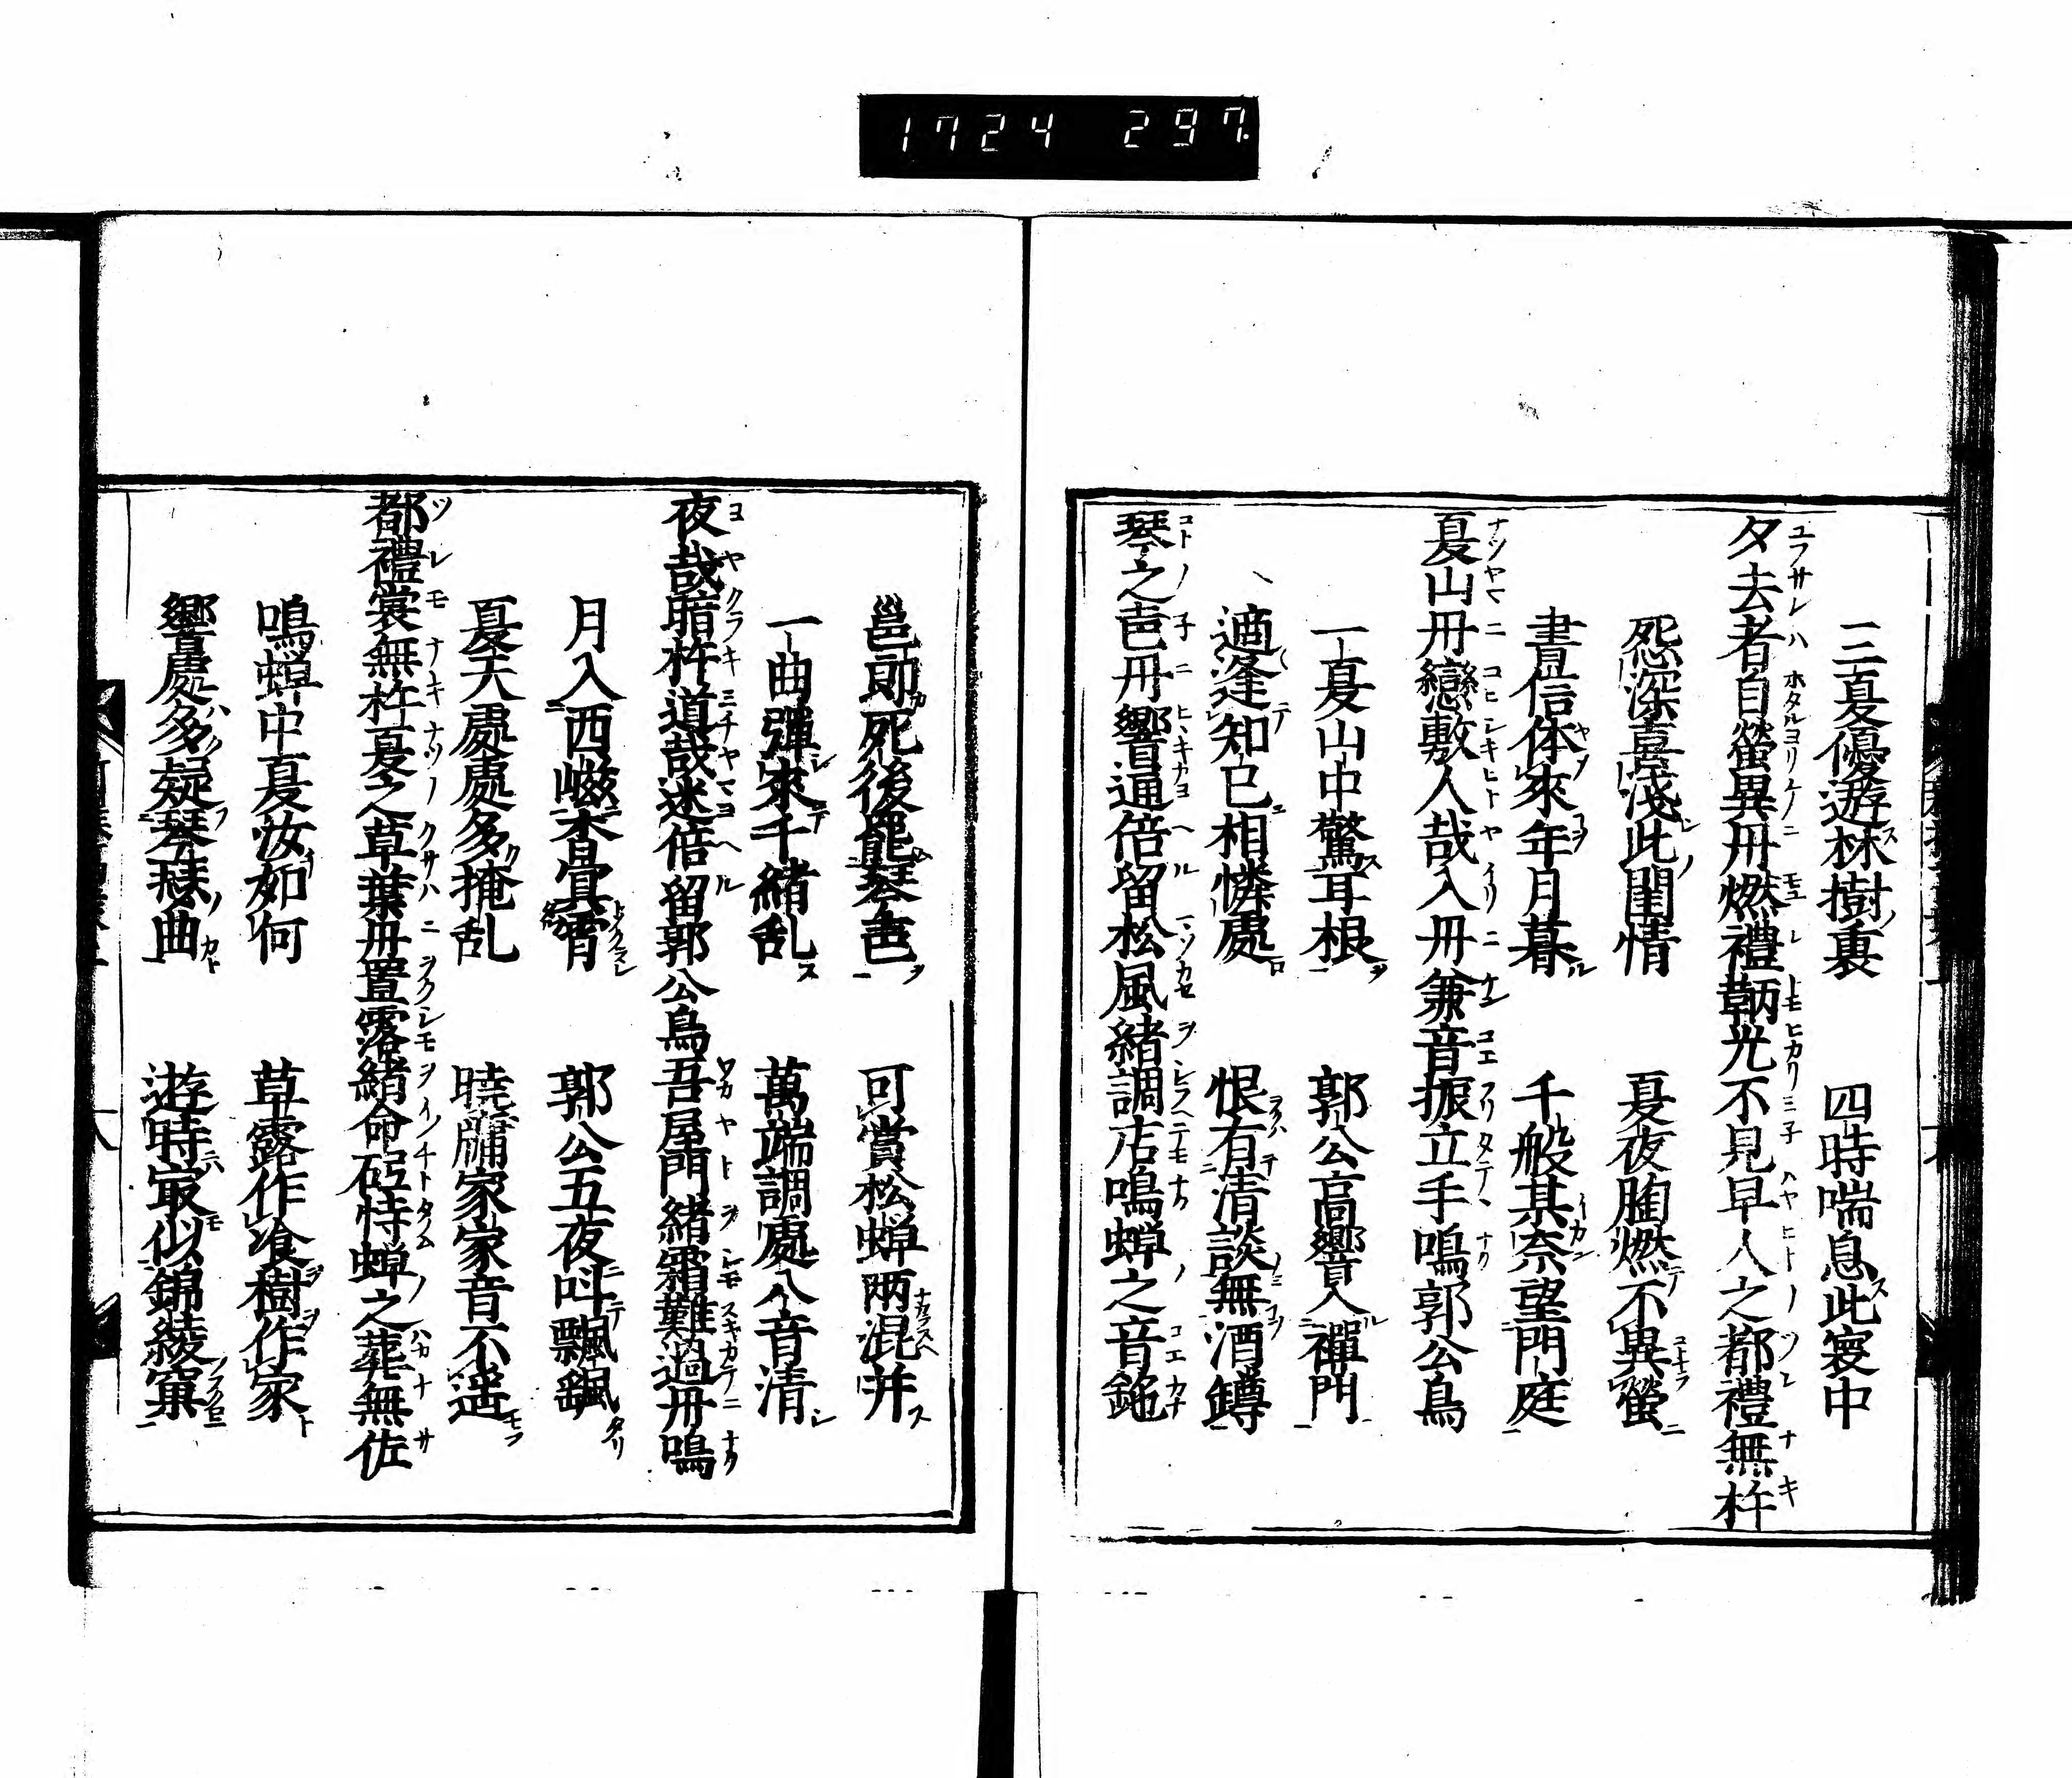 1724 297.
三夏優遊林樹裏 四時喘息此寰中
夕去者自螢異丹燃禮鞆光不見早人之都禮無杵
怨深喜淺此閨情 夏夜胸燃不異螢
書信休來年月暮 千般其奈望門庭
夏山丹戀敷人哉入丹兼音振立手鳴郭公鳥
一夏山中驚耳根 郭公高響入禪門
適逢知已相憐處 恨有清談無酒鐏
琴之聲丹響通倍留松風緒調店鳴蝉之音鉇
邕郎死後罷琴聲 可賞松蝉兩混并
一曲彈來千緒乱 萬端調處八音清
夜哉暗杵道哉迷倍留郭公鳥吾屋門緒霜難過丹鳴
月入西嵫杳冥霄 郭公五夜叫飄颻
夏天處處多掩乱 曉牖家家音不遥
都禮裳無杵夏之草葉丹置露緒命砳恃蝉之葬無佐
鳴蝉中夏汝如何 草露作飡樹作家
響處多疑琴瑟曲 遊時㝡似錦綾窠